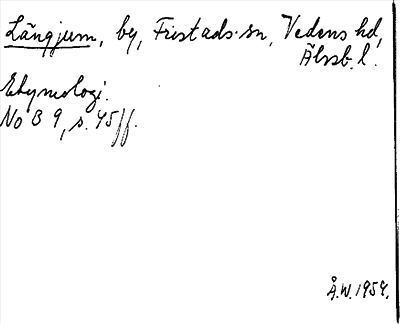 Längjum, by, Fristads sn, Vedens hd,
Älvsb. l.
Etymologi.
No B 9, s. 45 ff.
Å.W. 1959.